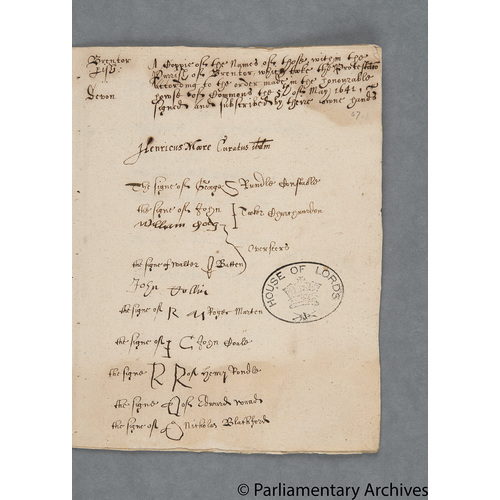 Brentor
Devon
A Coppie of the Names of those within the
Parrish of Brentor, which toke the Protestac̃on
according to the order made in the honourable
howse of Commons the of May 1641,
signed and subscribed by there owne hands
67
Henricus More Curatus ibm
The signe of George S Rundle Constable
the signe of John I Churchwarden
William
Overseers
the signe of Walter Batten
John
the signe of R M Roger Marten
the signe of I C John
the signe R R of Henry Rundle
the signe of Edward
the signe of Nicholas Blachford
HOUSE OF LORDS
© Parliamentary Archives